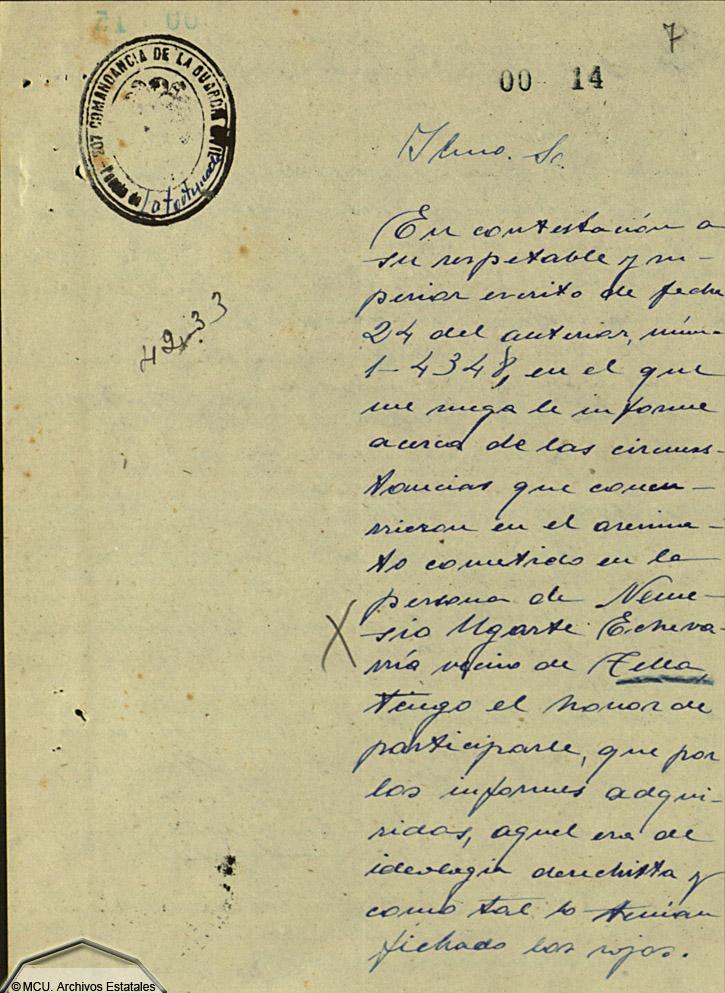 7
00 14
207 COMANDANCIA DE LA GUARDIA CIVIL
Puesto de
Ilmo. Sr.
En contestación a
su respetable y su-
perior escrito de fecha
24 del anterior, núm.
1-4348, en el que
me ruega le informe
acerca de las circuns-
tancias que concu-
rrieron en el asesina-
to cometido en la
persona de Neme-
sio Ugarte Echeva-
rría vecino de
tengo el honor de
participarle, que por
los informes adqui-
ridos, aquel era de
ideología derechista y
como tal lo tenían
fichado los rojos.
X
© MCU. Archivos Estatales